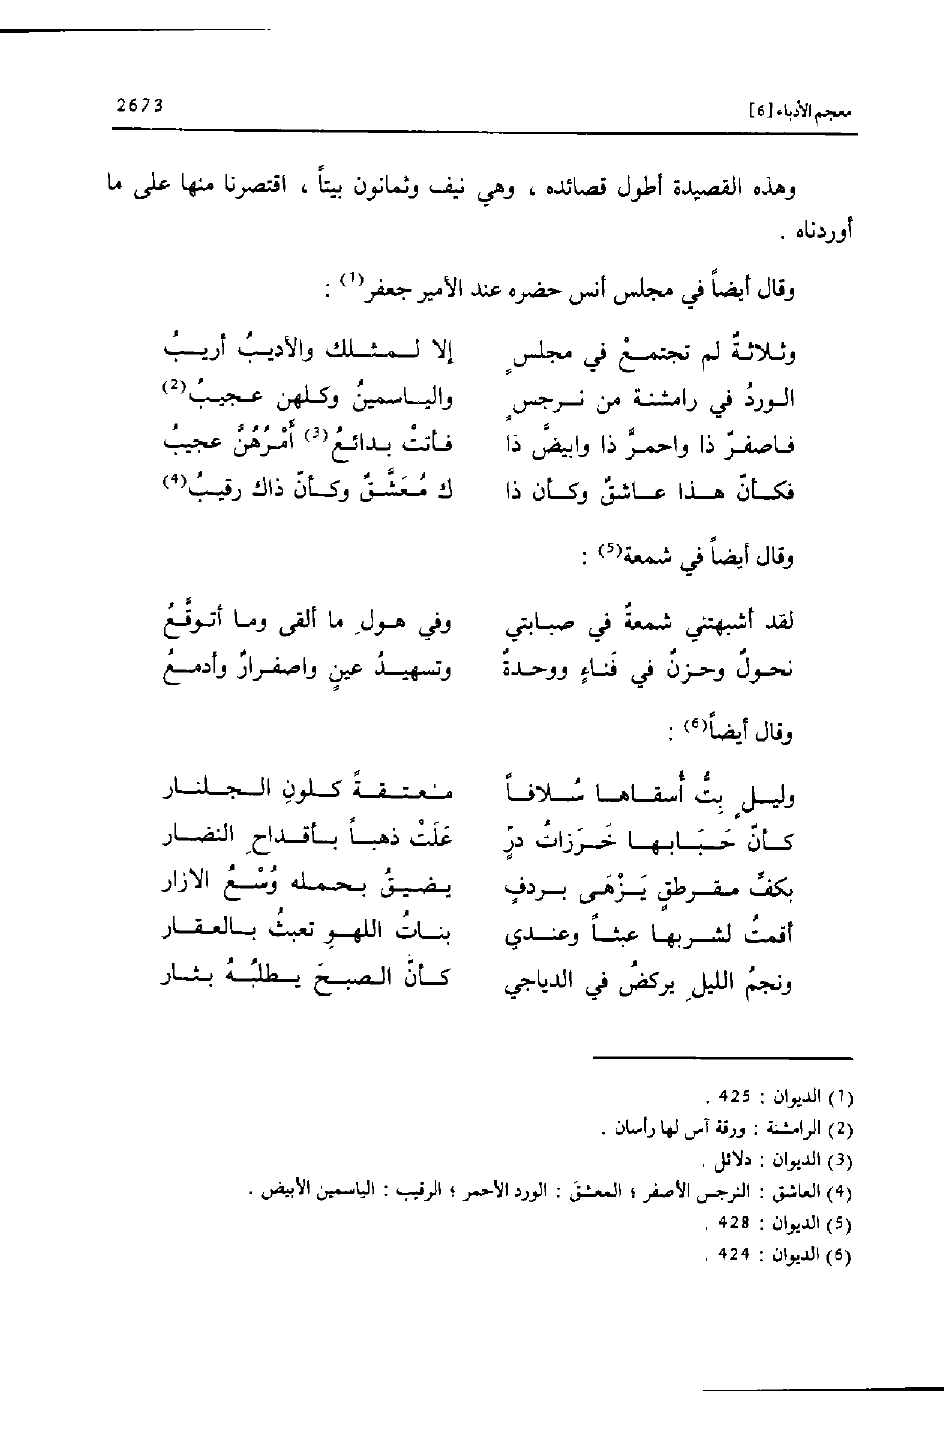 معجم الأدباء [6] 2673
وهذه القصيدة أطول قصائده ، وهي نيف وثمانون بيتاً ، اقتصرنا منها على ما
أوردناه .
وقال أيضاً في مجلس أنس حضره عند الأمير جعفر(1) :
وثلاثةٌ لم تجتمعْ في مجلسٍ إلا لمثلك والأديبُ أريبُ
الوردُ في رامشنة من نرجسٍ والياسمينُ وكلهن عجيبُ(2)
فاصفرّ ذا واحمرَّ ذا وابيضَّ ذا فأتتْ بدائعُ(3) أَمْرُهُنَّ عجيبُ
فكأنّ هذا عاشقٌ وكأن ذا ك مُعَشَّقٌ وكأنّ ذاك رقيبُ(4)
وقال أيضاً في شمعة(5) :
لقد أشبهتني شمعةٌ في صبابتي وفي هولِ ما ألقى وما أتوقَّعُ
نحولٌ وحزنٌ في فَناءٍ ووحدةٌ وتسهيدُ عينٍ واصفرارٌ وأدمعُ
وقال أيضاً(6) :
وليلٍ بِتُّ أُسقاها سُلافاً معتقةً كلونِ الجلنار
كأنّ حَبَابها خَرَزاتُ درٍّ عَلَتْ ذهباً بأقداحِ النضار
بكفِّ مقرطقٍ يَزْهَى بردفٍ يضيقُ بحمله وُسْعُ الازار
أقمتُ لشربها عبثاً وعندي بناتُ اللهوِ تعبثُ بالعقار
ونجمُ الليلِ يركضُ في الدياجي كأنّ الصبحَ يطلبُهُ بثار
(1) الديوان : 425 .
(2) الرامشنة : ورقة آس لها رأسان .
(3) الديوان : دلائل .
(4) العاشق : النرجس الأصفر ؛ المعشق : الورد الأحمر ؛ الرقيب : الياسمين الأبيض .
(5) الديوان : 428 .
(6) الديوان : 424 .